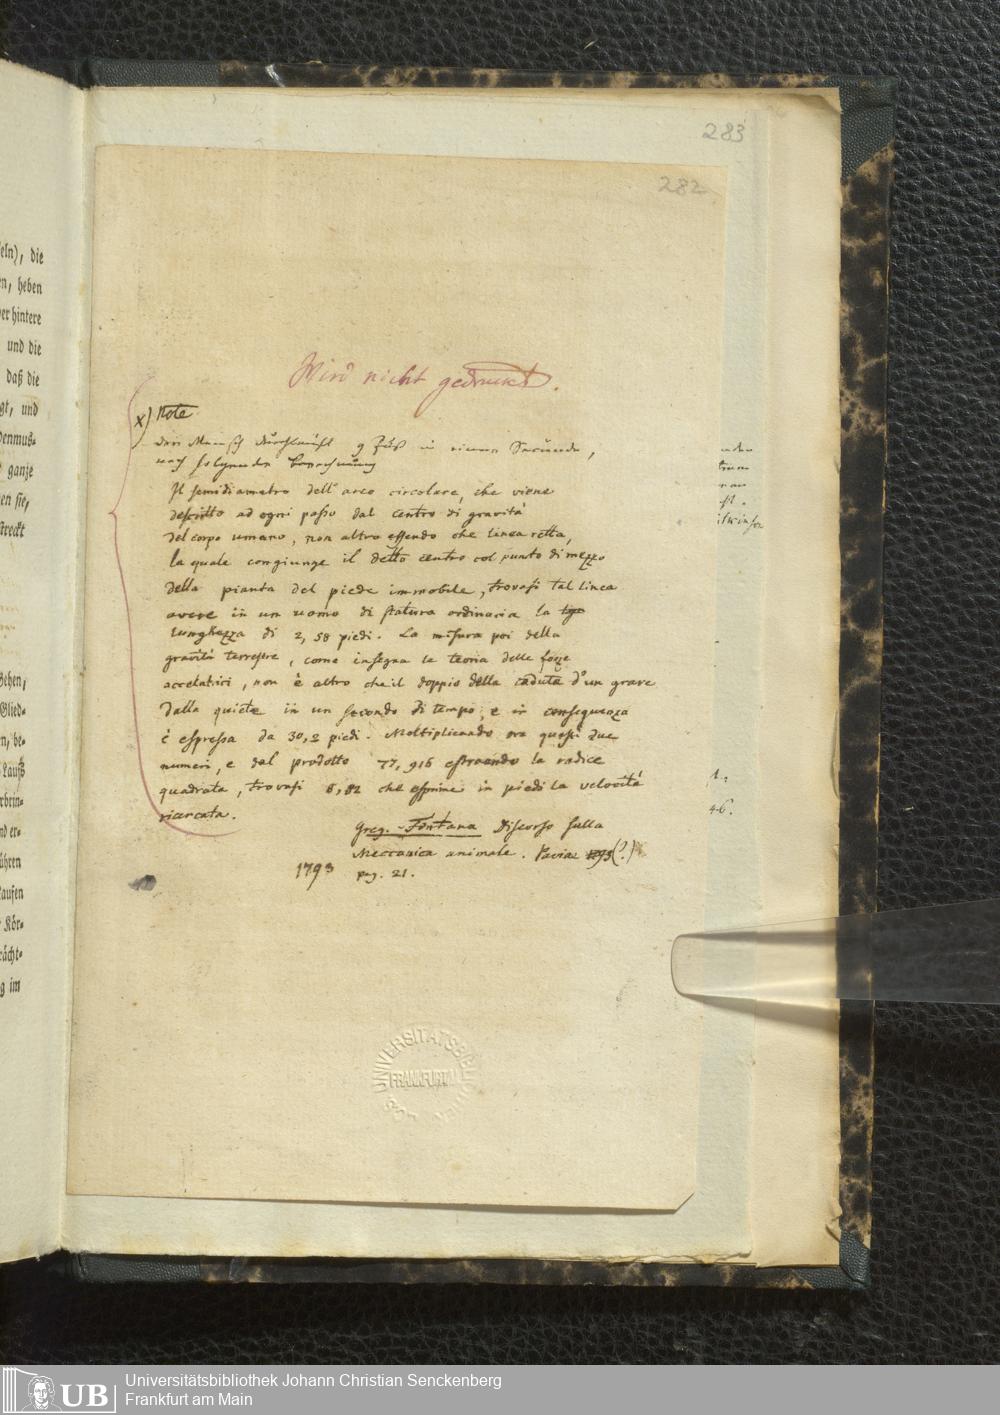 283
282
Wird nicht gedruckt.
x) Note
der Mensch durchläuft 9 Fuß in einer Secunde,
nach folgender Berechnung
Il semidiametro dell' arco circolare, che viene
descritto ad ogni passo dal centro di gravità
del corpo umano, non altro essendo che linea retta,
la quale congiunge il detto centro col punto di mezzo
della pianta del piede immobile, trovasi tal linea
avere in un uomo di statura ordinaria la
lunghezza di 2,58 piedi. La misura poi della
gravità terrestre, come insegna la teoria delle forze
acceleratrici, non è altro che il doppio della caduta d'un grave
dalla quiete in un secondo di tempo, e in conseguenza
è espressa da 30,2 piedi. Moltiplicando ora questi due
numeri, e dal prodotto 77,916 estraendo la radice
quadrata, trovasi 8,82 che esprime in piedi la velocità
ricercata.
Greg. Fontana Discorso sulla
Meccanica animale. Pavia 1795(?)
1793 pag. 21.
eln), die
en, heben
er hintere
und die
daß die
gt, und
denmus-
ganze
en sie,
streckt
Gehen,
Glied-
n, be-
Lauß
nd er-
ühren
Laufen
Kör-
rächt-
g im
46.
UNIVERSITÄTSBIBLIOTHEK
FRANKFURT/M
J.C.S.
UB
Universitätsbibliothek Johann Christian Senckenberg
Frankfurt am Main